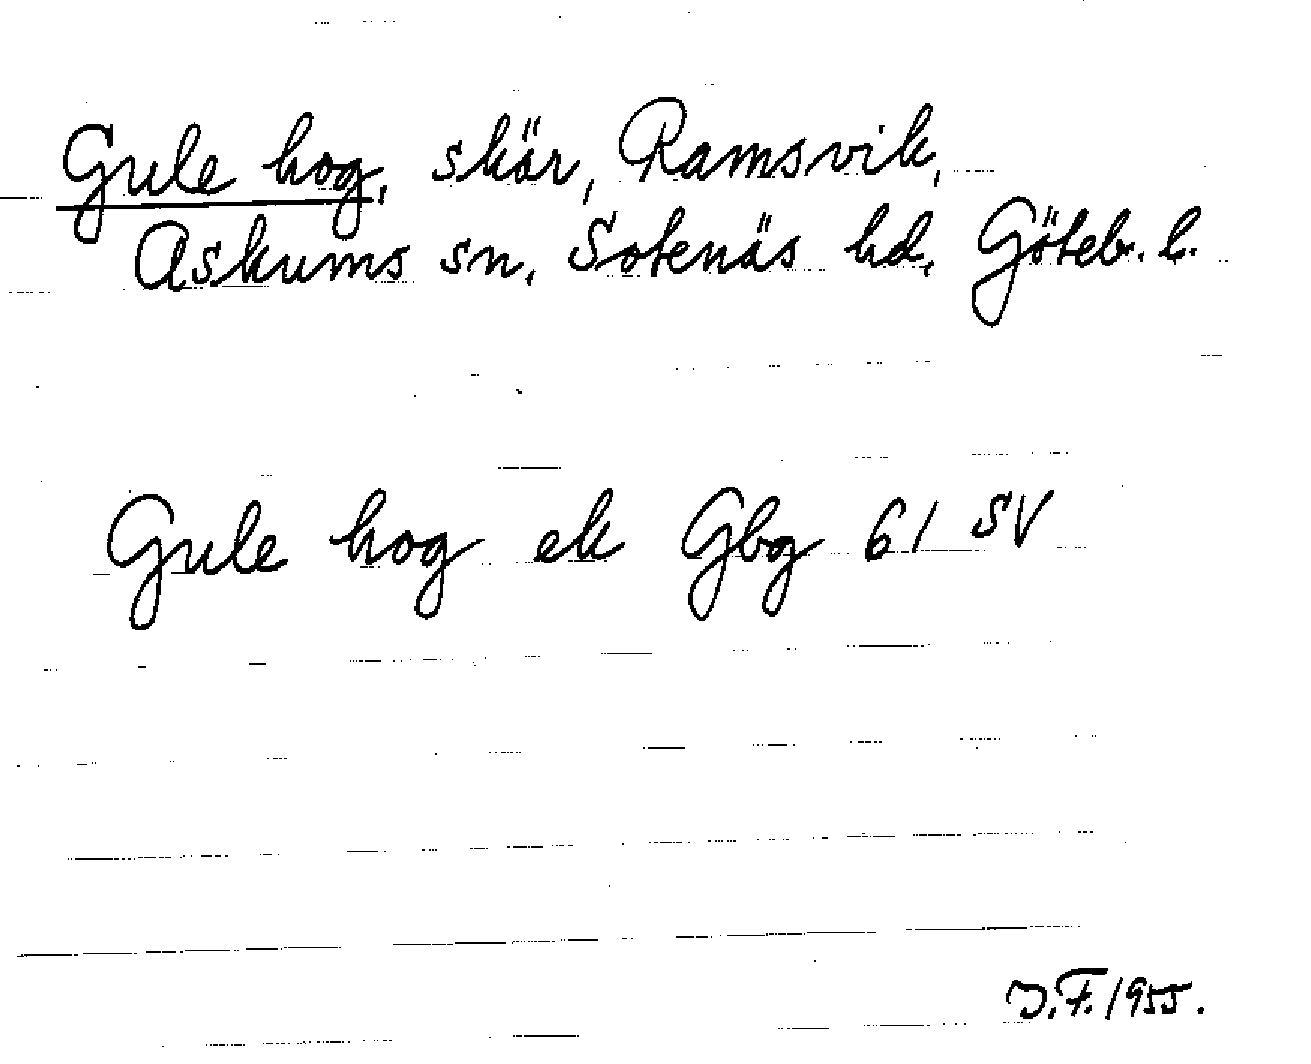 Gule hog, skär, Ramsvik,
Askums sn, Sotenäs hd, Göteb. l.
Gule hog ek Gbg 61 SV
J.F. 1955.